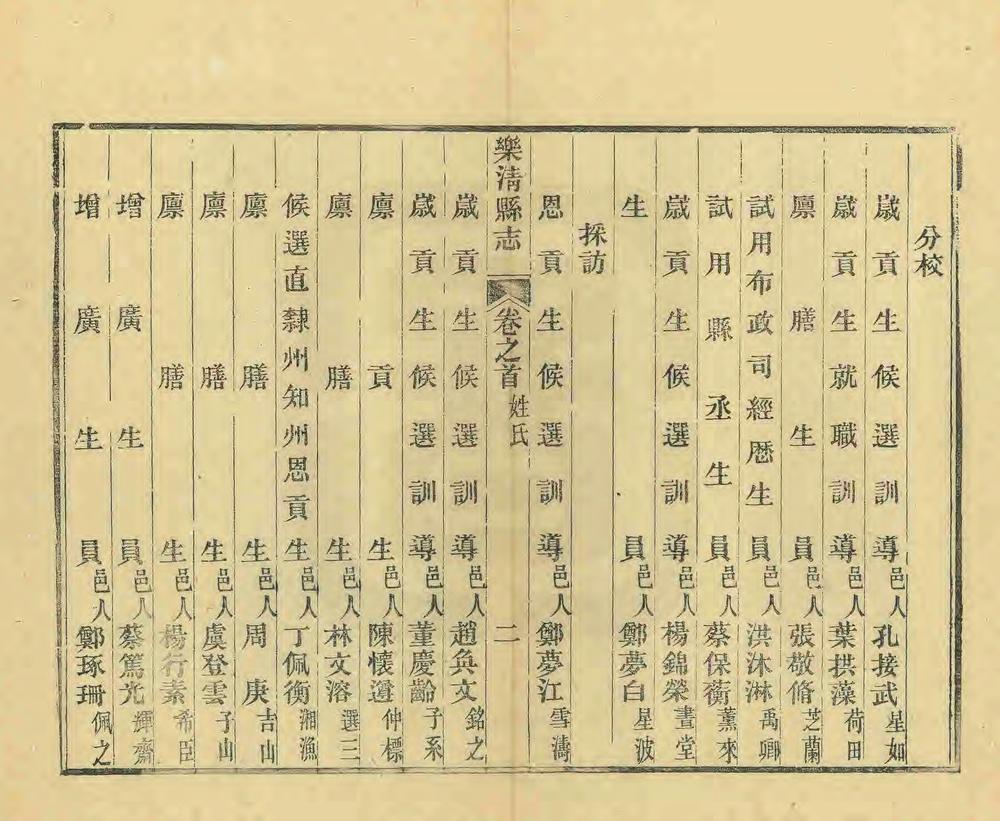 分校
歲貢生候選訓導邑人孔接武星如
歲貢生就職訓導邑人葉拱藻荷田
廩膳生員邑人張敬脩芝蘭
試用布政司經歷生員邑人洪沐淋禹卿
試用縣丞生員邑人蔡保蘅薰來
歲貢生候選訓導邑人楊錦榮晝堂
生員邑人鄭夢白星波
採訪
恩貢生候選訓導邑人鄭夢江雪濤
樂清縣志 卷之首 姓氏 二
歲貢生候選訓導邑人趙奐文銘之
歲貢生候選訓導邑人董慶齡子系
廩貢生邑人陳懷邁仲標
廩膳生邑人林文溶選三
候選直隸州知州恩貢生邑人丁佩衡湘漁
廩膳生邑人周庚吉山
廩膳生邑人虞登雲子山
廩膳生邑人楊行素希臣
增廣生員邑人蔡篤光輝齋
增廣生員邑人鄭琢珊佩之